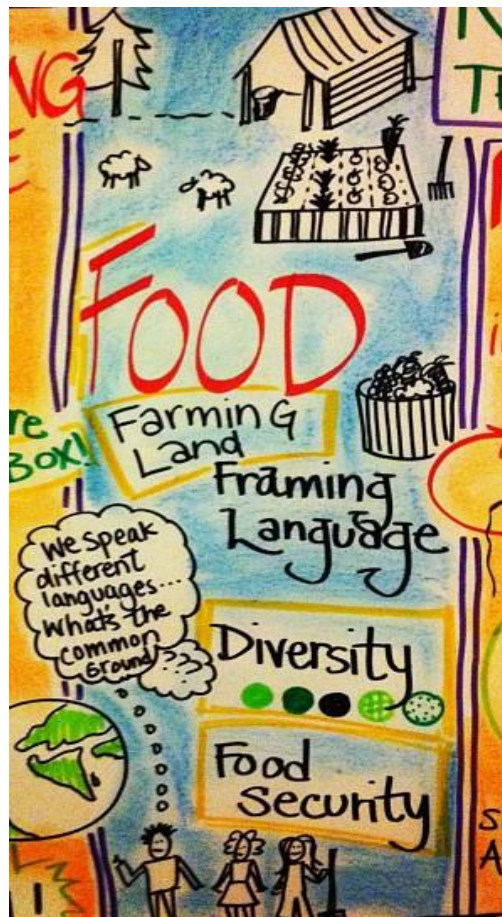 NG
E
N
T
FOOD
Farming
Land
Framing
Language
re
BOX!
We speak
different
languages...
What's the
common
Ground
Diversity
Food
Security
S
A